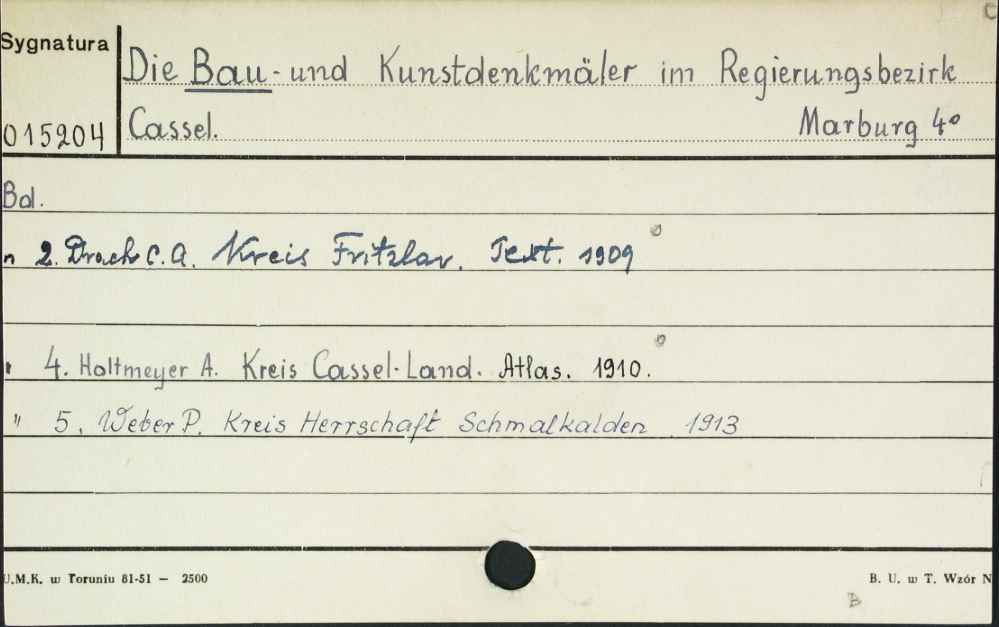 C
Sygnatura
Die Bau- und Kunstdenkmäler im Regierungsbezirk
015204
Cassel. Marburg 4º
Bd.
" 2. Drach C. A. Kreis Fritzlar. Text. 1909
" 4. Holtmeyer A. Kreis Cassel-Land. Atlas. 1910.
" 5. Weber P. Kreis Herrschaft Schmalkalden 1913
U.M.K. w Toruniu 81-51 — 2500
B. U. w T. Wzór N
B